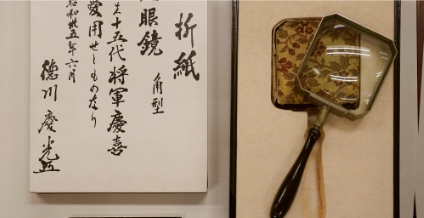 折紙
眼鏡 角型
十五代将軍慶喜
愛用せしものなり
昭和卅五年六月
徳川慶光